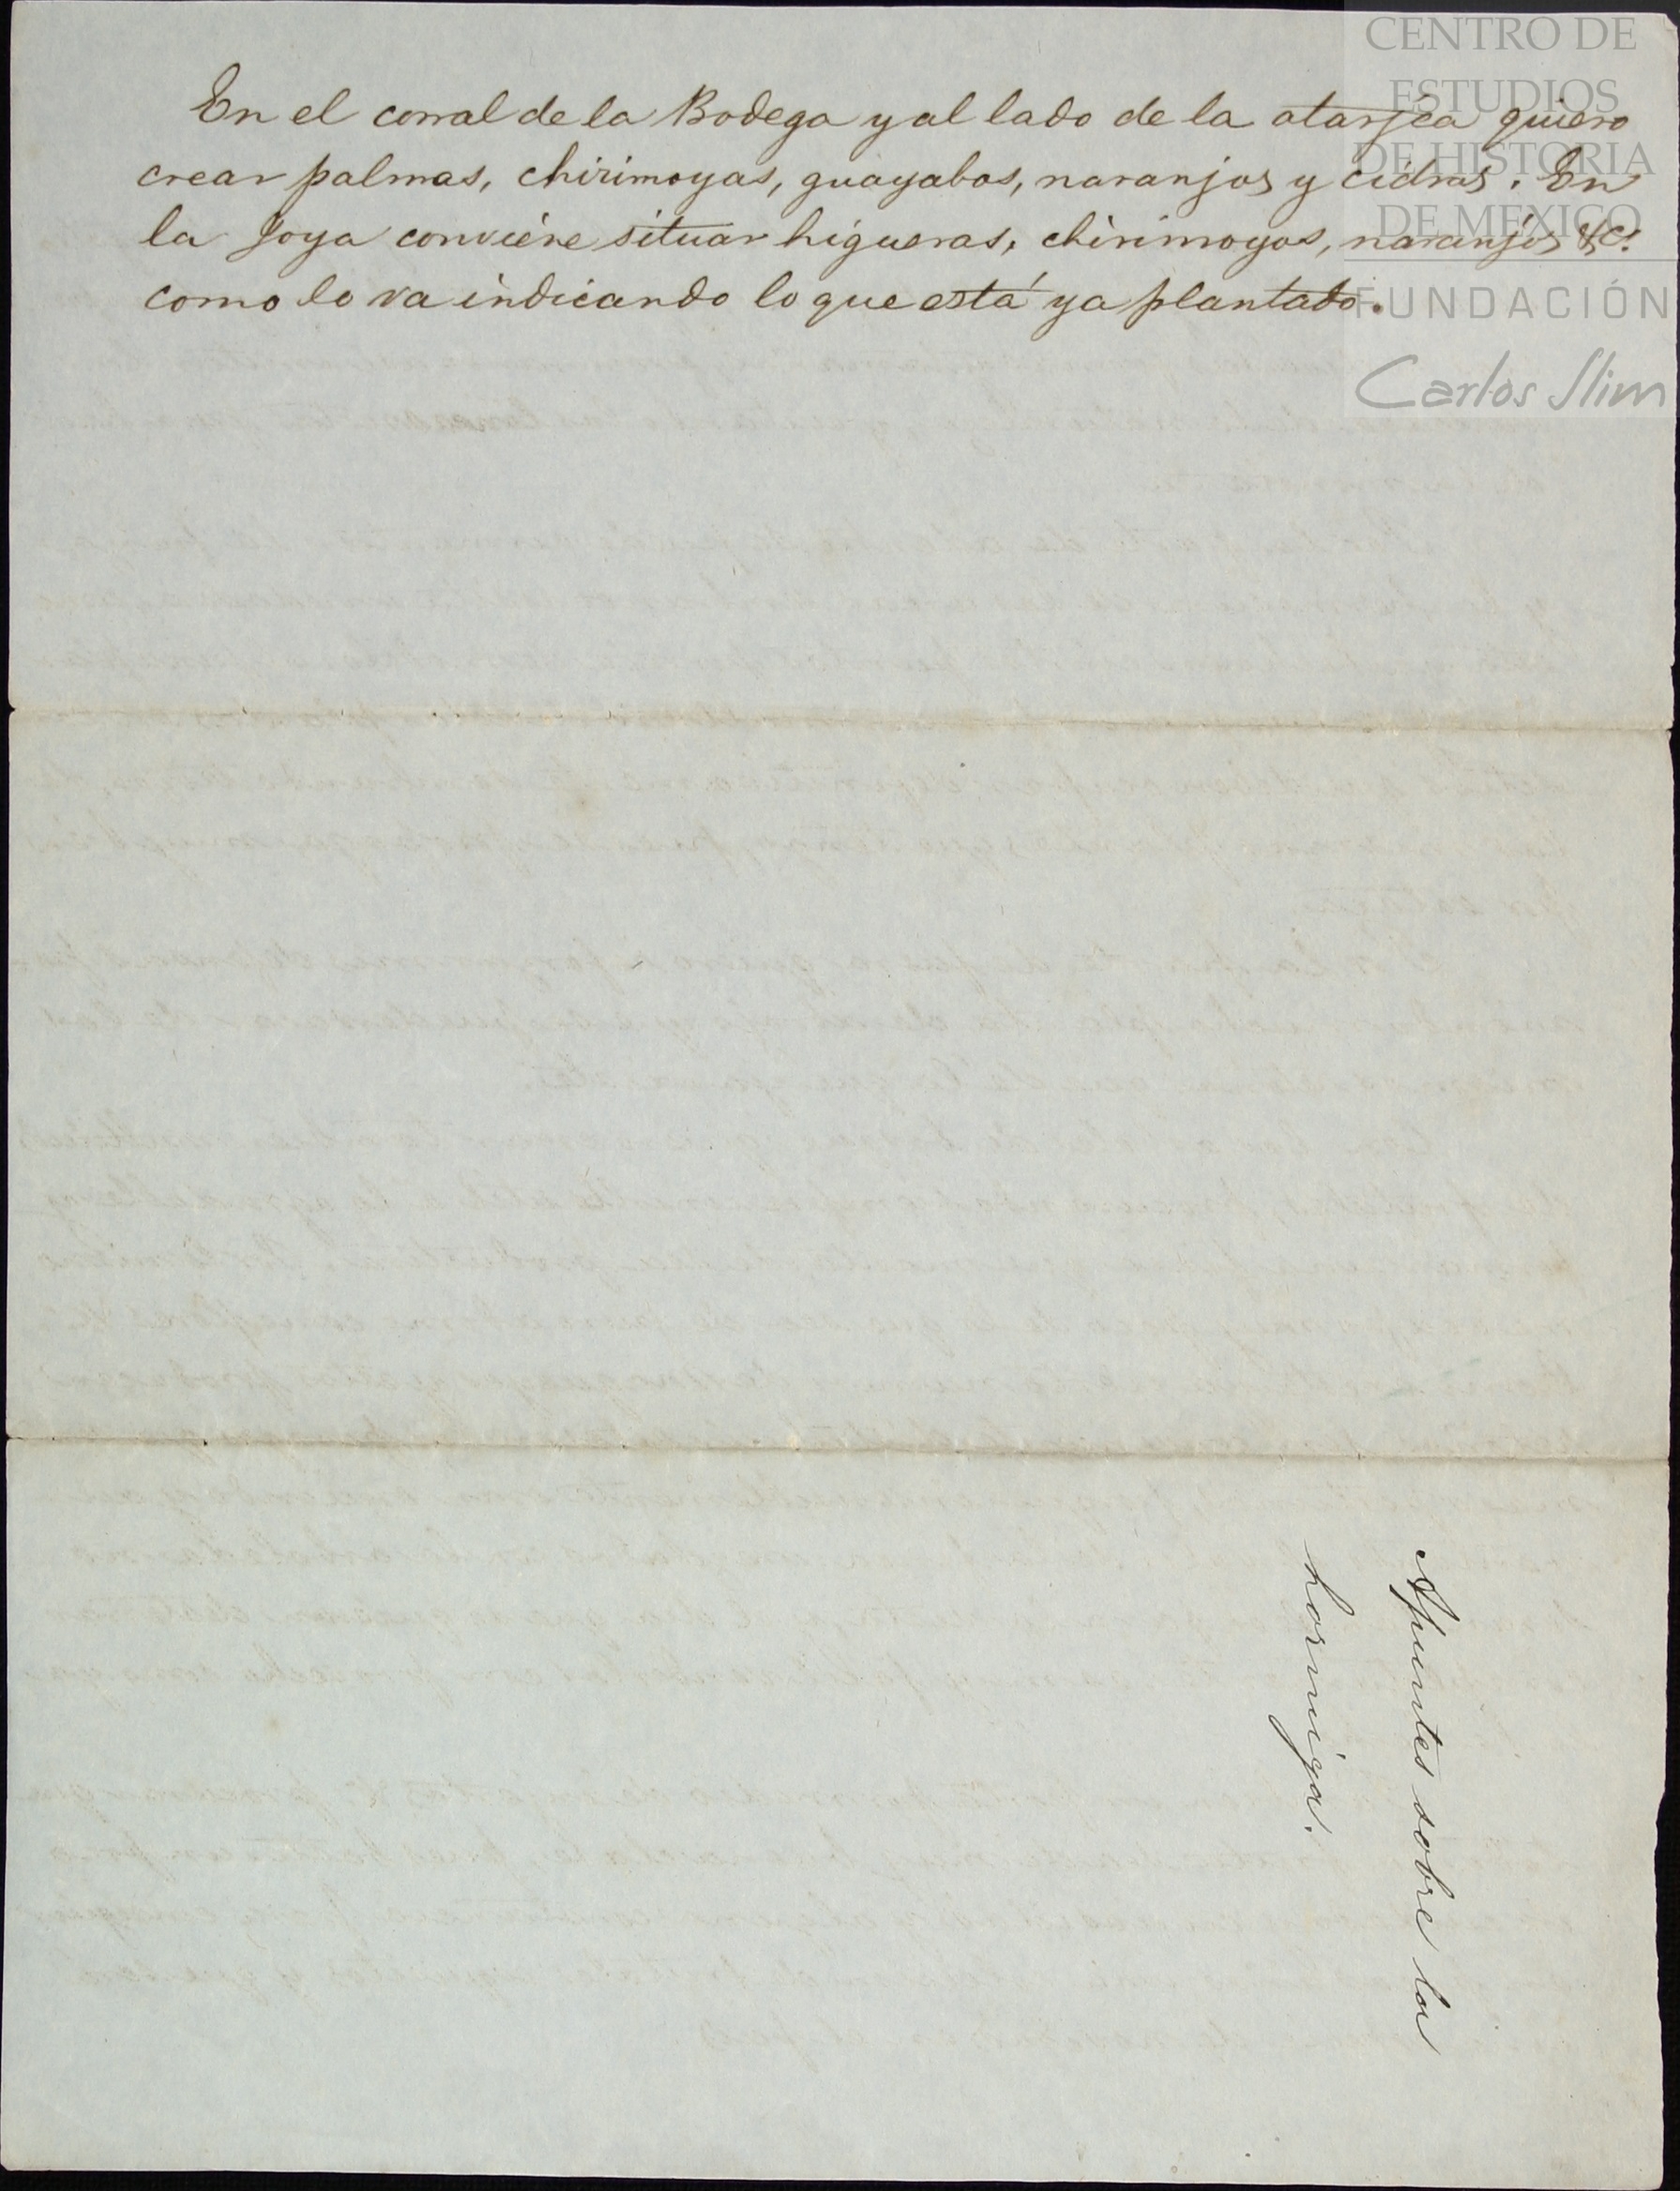 En el corral de la Bodega y al lado de la atarjea quiero
crear palmas, chirimoyas, guayabos, naranjos y cidras. En
la Joya conviene situar higueras, chirimoyos, naranjos &c.
como lo va indicando lo que está ya plantado.
Apuntes sobre la
hormiga.
CENTRO DE
ESTUDIOS
DE HISTORIA
DE MEXICO
FUNDACIÓN
Carlos Slim